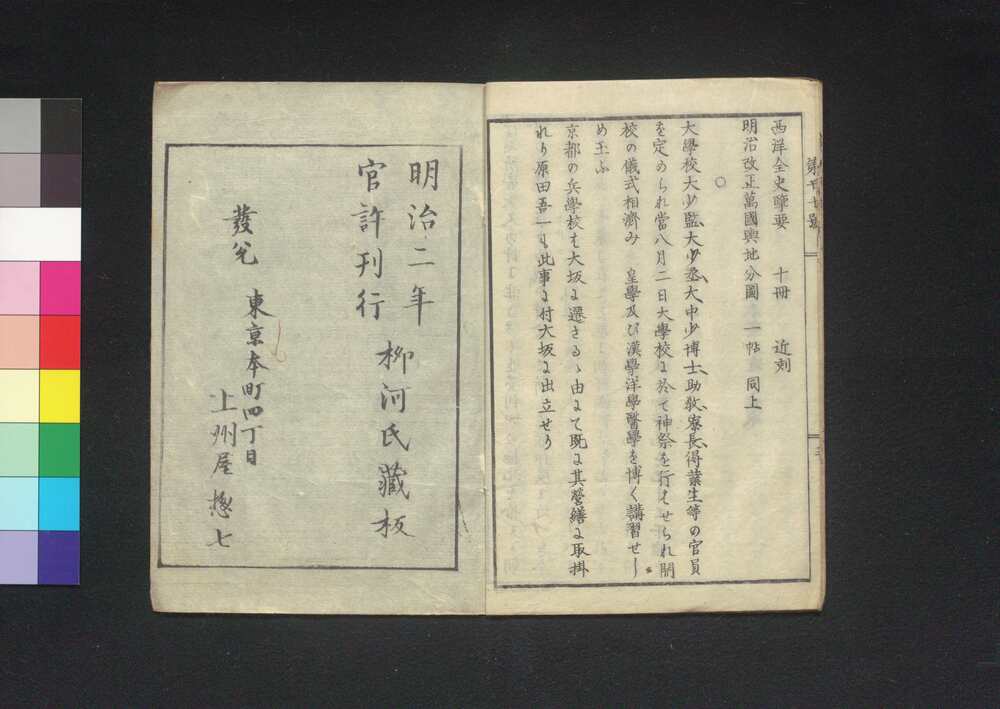 西洋全史墬要　十冊　近刻
明治改正萬國輿地分圖　一帖　同上
○
大學校大少監大少丞大中少博士助敎寮長得業生等の官員
を定められ當八月二日大學校に於て神祭を行はせられ開
校の儀式相濟み　皇學及び漢學洋學醫學を博く講習せし
め玉ふ
京都の兵學校も大坂に遷さるゝ由にて既に其營繕に取掛
れり原田吾一も此事に付大坂に出立せり
明治二年
官許刊行
柳河氏藏板
發兌
東京本町四丁目
上州屋惣七